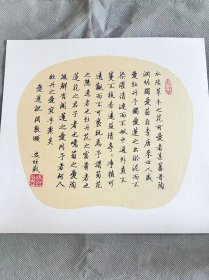 水陸草木之花可愛者甚蕃晉陶
淵明獨愛菊自李唐來世人盛
愛牡丹予獨愛蓮之出淤泥而不
染濯清漣而不妖中通外直不
蔓不枝香遠益清亭亭淨植可
遠觀而不可褻玩焉予謂菊花
之隱逸者也牡丹花之富貴者也
蓮花之君子者也噫菊之愛陶
後鮮有聞蓮之愛同予者何人
牡丹之愛宜乎眾矣
愛蓮說 周敦頤